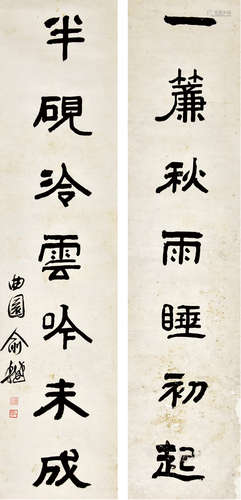 一簾秋雨睡初起
半硯冷雲吟未成
曲園俞樾